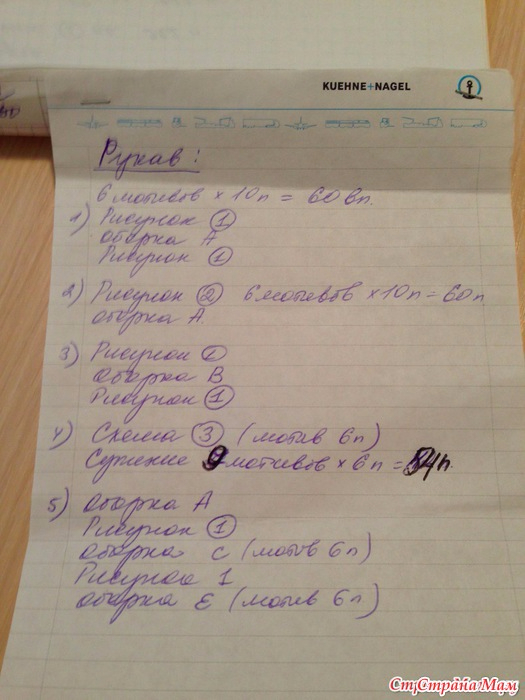 KUEHNE+NAGEL
Рукав:
6 мотивов × 10п = 60вп.
1) Рисунок 1
оборка А
Рисунок 1
2) Рисунок 2 6 мотивов × 10п = 60п
оборка А.
3) Рисунок 1
оборка В
Рисунок 1
4) Схема 3 (мотив 6п)
Сужение 9 мотивов × 6п = 54п.
5) оборка А
Рисунок 1
оборка С (мотив 6п)
Рисунок 1
оборка Е (мотив 6п)
СтрАнаМам